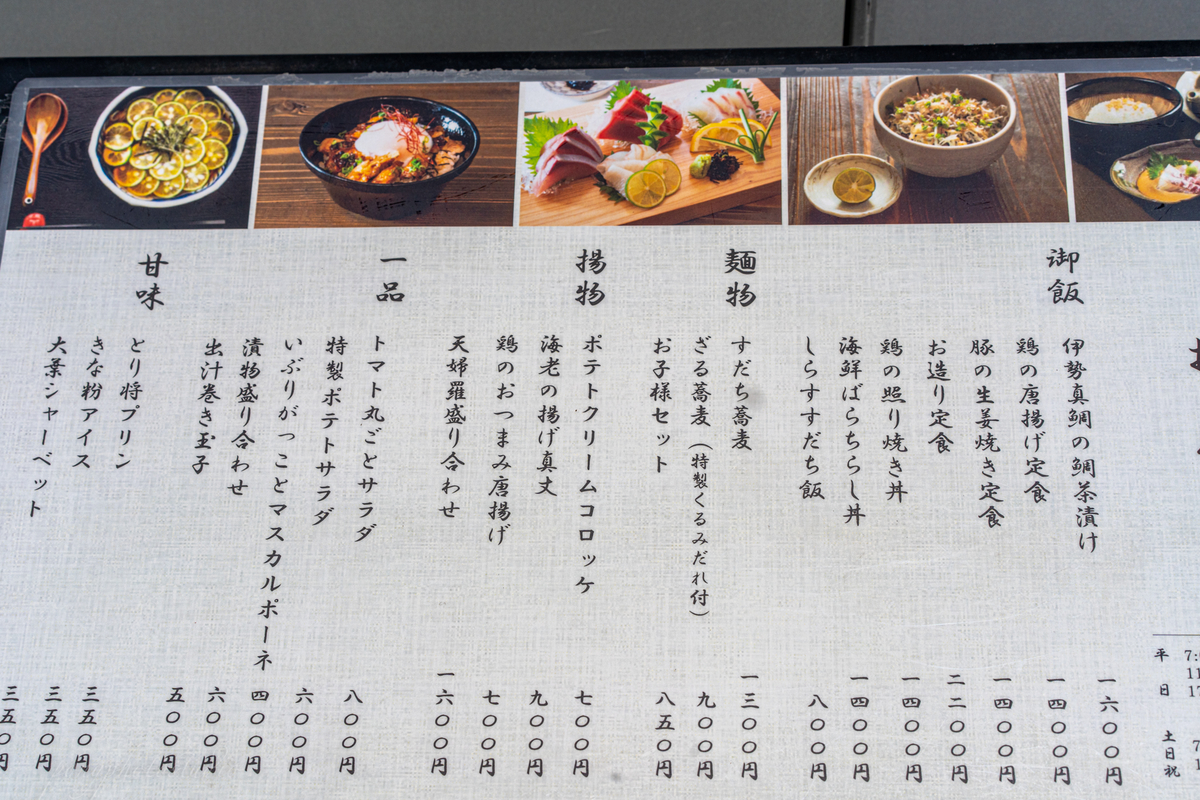 平日
土日祝
御飯
伊勢真鯛の鯛茶漬け 一六〇〇円
鶏の唐揚げ定食 一四〇〇円
豚の生姜焼き定食 一四〇〇円
お造り定食 二二〇〇円
鶏の照り焼き丼 一四〇〇円
海鮮ばらちらし丼 一四〇〇円
しらすすだち飯 八〇〇円
麺物
すだち蕎麦 一三〇〇円
ざる蕎麦（特製くるみだれ付） 九〇〇円
お子様セット 八五〇円
揚物
ポテトクリームコロッケ 七〇〇円
海老の揚げ真丈 九〇〇円
鶏のおつまみ唐揚げ 七〇〇円
天婦羅盛り合わせ 一六〇〇円
一品
トマト丸ごとサラダ 八〇〇円
特製ポテトサラダ 六〇〇円
いぶりがっことマスカルポーネ 四〇〇円
漬物盛り合わせ 六〇〇円
出汁巻き玉子 五〇〇円
甘味
とり将プリン 三五〇円
きな粉アイス 三五〇円
大葉シャーベット 三五〇円